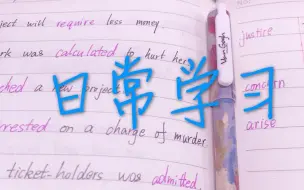 ject will require less money
ork was calculated to hurt her
ched a new project
rrested on a charge of murder
ticket-holders was admitted
justice
concern
arise
日常学习